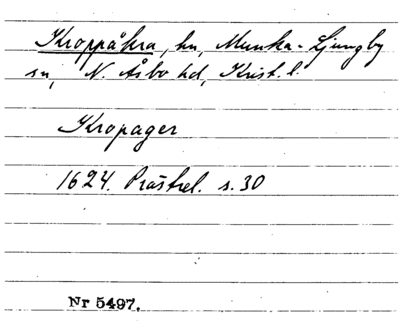 Kroppåkra, hn, Munka-Ljungby
sn, N. Åsbo hd, Krist. l.
Kropager
1624. Prästrel. s. 30
Nr 5497.